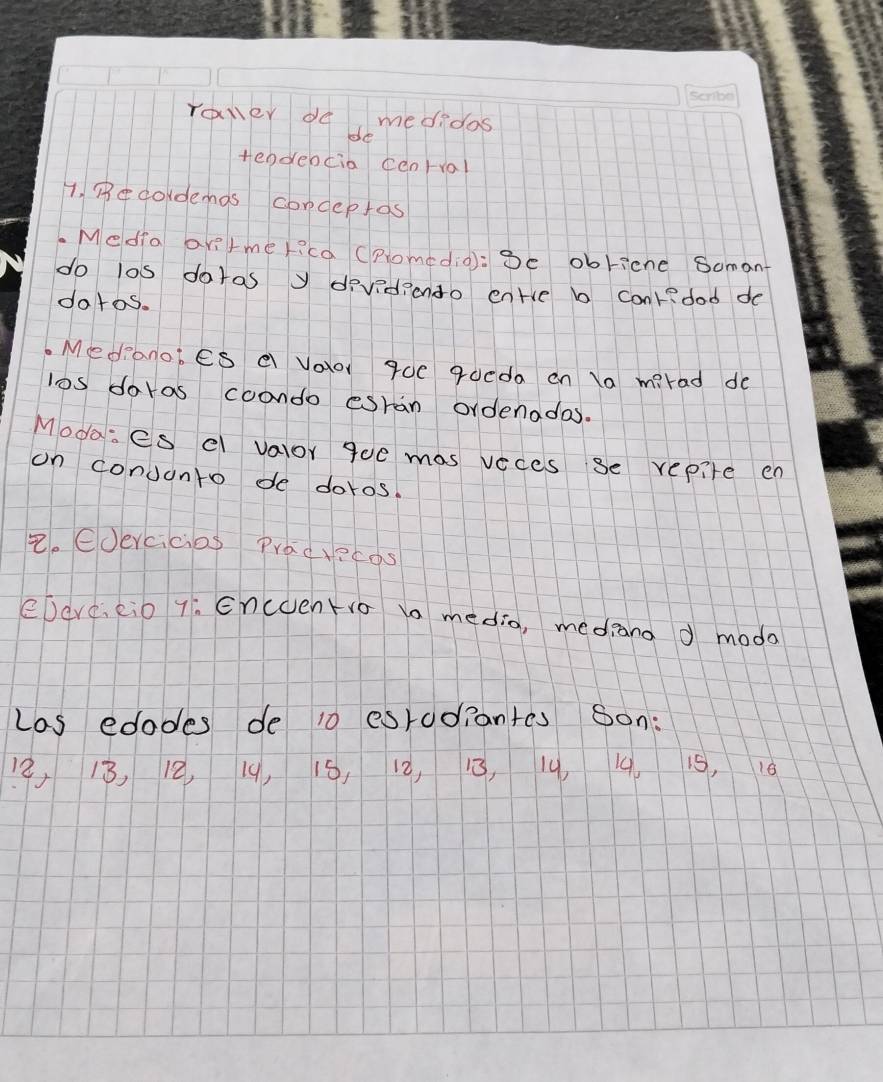 Scribe
Taller de medidas
de
tendencia central
1. Recordemos conceptos
. Media aritmetica (Promedio): Se obtiene Soman-
do los datos y dividiendo entre la cantidad de
datos.
. Mediana: Es el valor que queda en la mitad de
los datos cuando están ordenados.
Moda: es el valor que mas veces se repite en
un conjunto de datos.
2. Ejercicios Practicos
Ejercicio 1: Encuentro la media, mediana y moda
Las edades de 10 estudiantes Son:
12, 13, 12, 14, 15, 12, 13, 14, 14, 15, 16